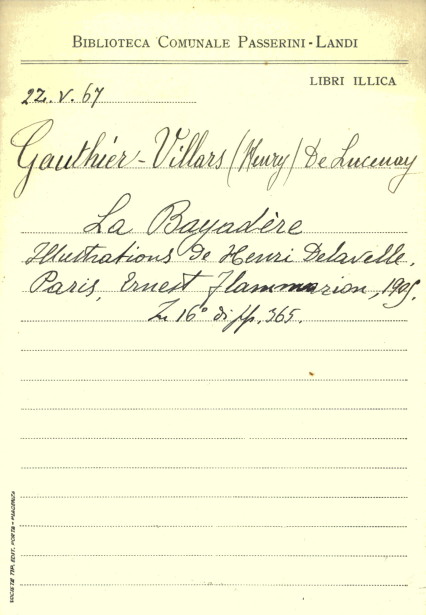 BIBLIOTECA COMUNALE PASSERINI-LANDI
LIBRI ILLICA
2Z. V. 67
Gauthier-Villars (Henry) De Lucenay
La Bayadère
Illustrations De Henri Delavelle,
Paris, Ernest Flammarion, 1905.
In 16° di pp. 365.